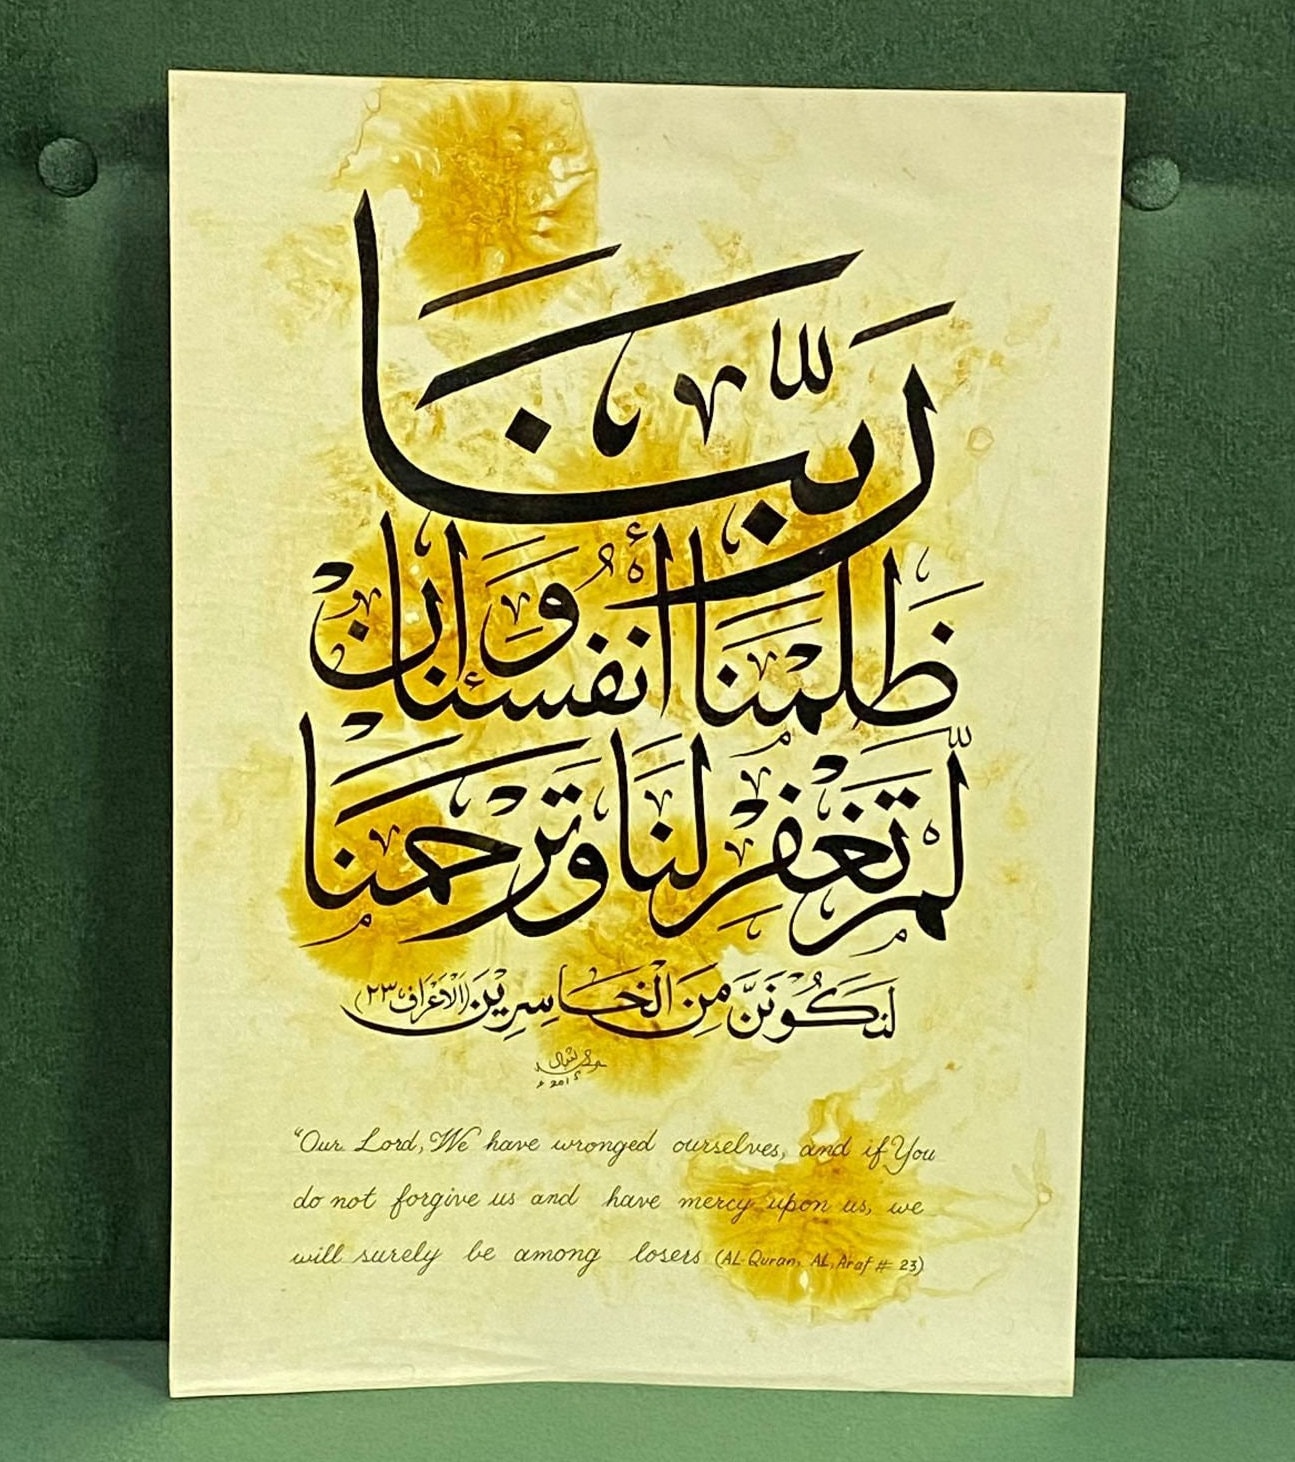 رَبَّنَا
ظَلَمْنَا أَنْفُسَنَا وَإِنْ
لَّمْ تَغْفِرْ لَنَا وَتَرْحَمْنَا
لَنَكُوْنَنَّ مِنَ الْخَاسِرِيْنَ (الْاَعْرَاف ٢٣)
2015
“Our Lord, We have wronged ourselves, and if You
do not forgive us and have mercy upon us, we
will surely be among losers (AL-Quran, AL, Araf # 23)